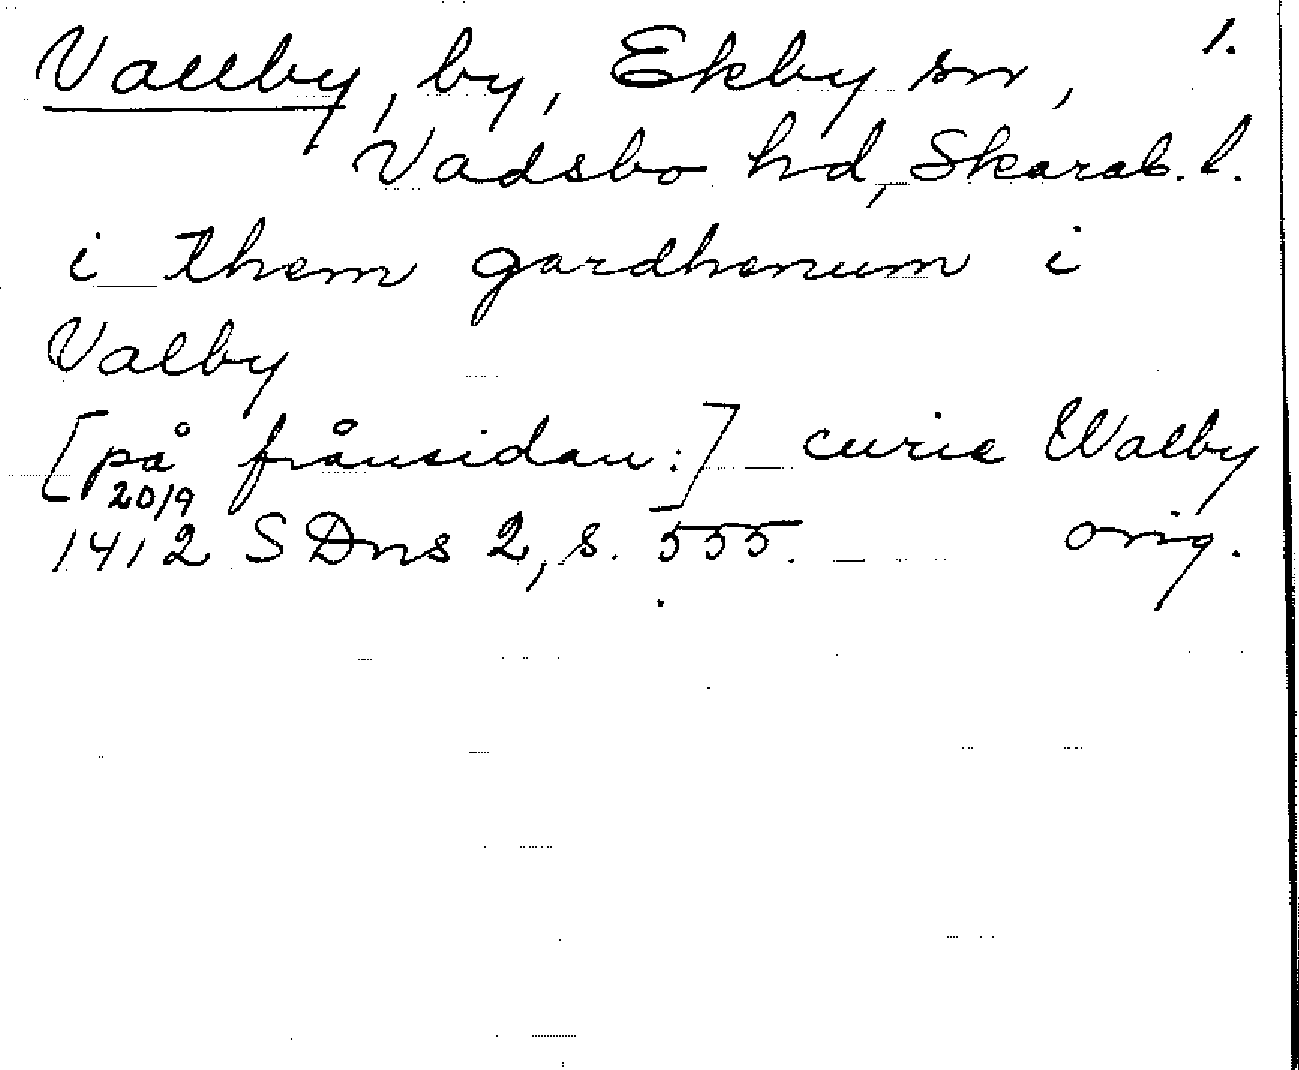 Vallby, by, Ekby sn, 1.
Vadsbo hd, Skarab. l.
i them gardhenum i
Valby
[på frånsidan:] curie Walby
20/9
1412 SDns 2, s. 555. orig.